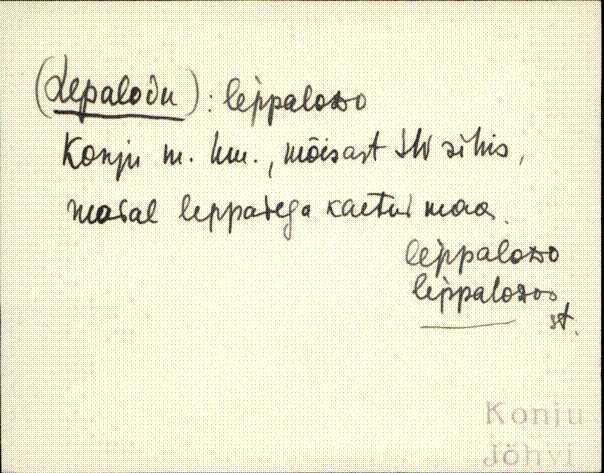 (Lepalodu): leppaloᴅo
Konju m. hm., mõisast SW sihis,
madal leppadega kaetud maa.
leppaloᴅo
leppaloᴅos
st.
Konju
Jõhvi